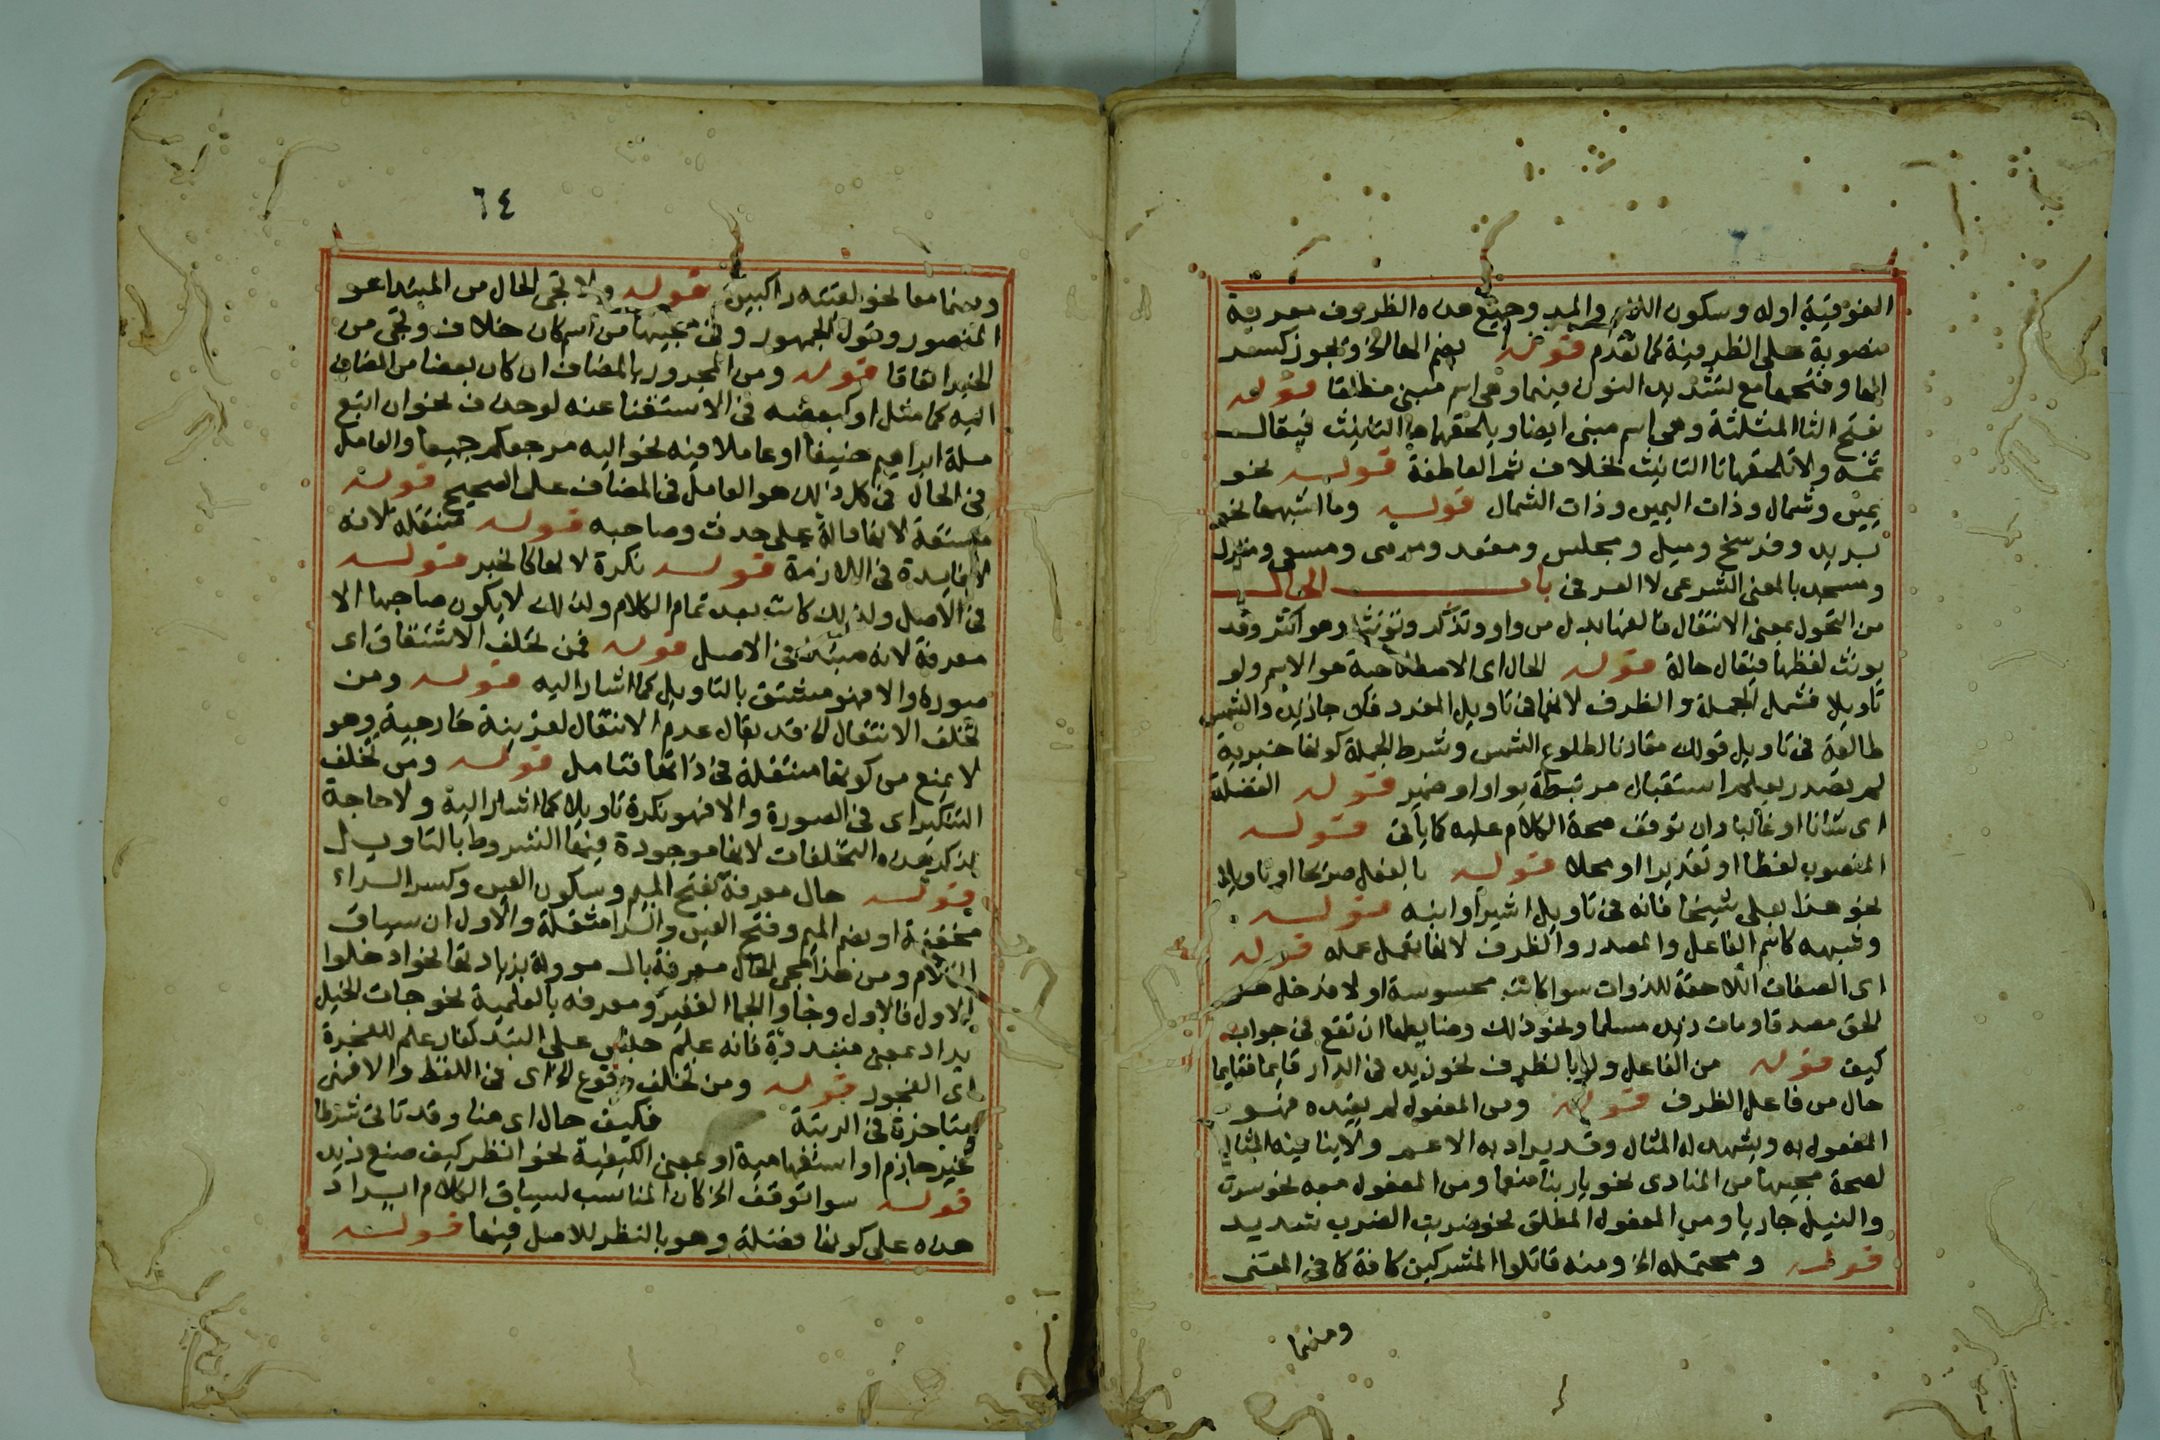 الفوقية اوله وسكون اللام والميم وجميع هذه الظروف معربة
منصوبة على الظرفية كما تقدم قوله بضم الهاالخ وتجوز كسر
الها وفتحها مع تشديد النون فيهما وهي اسم مبني مطلقا قوله
بفتح الثا المثلثة وهي اسم مبني ايضا ويلحقها ها التانيث فيقال
ثمه ولا تلحقها تا التانيث بخلاف ثم العاطفة قوله نحو
يمين وشمال وذات اليمين وذات الشمال قوله وما اشبهها نحو
بريد وفرسخ وميل ومجلس ومقعد ومرمى ومسعى ومنزل
ومسجد بالمعنى الشرعي لا العرفي باب الحال
من التحول بمعنى الانتقال فالفها بدل من واو وتذكر وتونث وهو اكثر وقد
يونث لفظها فيقال حالة قوله الحال اى الاصطلاحية هو الاسم ولو
تاويلا فشمل الجملة والظرف لانهما في تاويل المفرد فكل جا زيد والشمس
طالعة في تاويل قولك مقارنا لطلوع الشمس وشرط الجملة كونها خبرية
لم تصدر بعلم استقبال مرتبطة بواو او ضمير قوله الفضلة
اى شانا او غالبا وان توقف صحة الكلام عليه كما ياتي قوله
المنصوب لفظا او تقديرا او محلا قوله بالفعل صريحا او تاويلا
نحو هذا بعلى شيخا فانه في تاويل اشير او انبه قوله
وشبهه كاسم الفاعل والمصدر والظرف لانها تعمل عمله قوله
اى الصفات اللاحقة للذوات سوا كانت محسوسة او لا فدخل هو
الحق مصدقا ومات زيد مسلما ونحو ذلك وضابطها ان تقع في جواب
كيف قوله من الفاعل ولو بالظرف نحو زيد في الدار قايما فقايما
حال من فاعل الظرف قوله ومن المفعول لم يقيده فهو
المفعول به ويشهد له المثال وقد يراد به الاعم ولا ينافيه المثال
لصحة مجيها من المنادى نحو يا ربنا منعما ومن المفعول معه نحو سرت
والنيل جاريا ومن المفعول المطلق نحو ضربت الضرب شديد
قوله ومحتمله الخ ومنه قاتلوا المشركين كافة كما في المغنى
ومنهما
٦٤
ومنهما معا نحو لقيته راكبين قوله ولا تجى الحال من المبتدا عو
المنصور وقول الجمهور وفي مجيها من اسم كان خلاف وتجى من
الخبر اتفاقا قوله ومن المجرور بالمضاف ان كان بعضا من المضاف
اليه كما مثل او كبعضه في الاستغنا عنه لو حذف نحو ان اتبع
ملة ابراهيم حنيفا او عاملا فيه نحو اليه مرجعكم جميعا والعامل
في الحال في كل ذلك هو العامل في المضاف على الصحيح قوله
مشتقة لانها دالة على حدث وصاحبه قوله منتقله لانه
لا فايدة في اللازمة قوله نكرة لانها كالخبر قوله
في الاصل ولذلك كانت بعد تمام الكلام ولذلك لا يكون صاحبها الا
معرفة لانه مبتدا في الاصل قوله فمن تخلف الاشتقاق اى
صورة والا فهو مشتق بالتاويل كما اشار اليه قوله ومن
تخلف الانتقال الخ قد يقال عدم الانتقال لقرينة خارجية وهو
لا يمنع من كونها منتقلة في ذاتها فتامل قوله ومن تخلف
التنكير اى في الصورة والا فهو نكرة تاويلا كما اشار اليه ولا حاجة
لذكر هذه التخلفات لانها موجودة فيها الشروط بالتاويل
قوله حال معرفة بفتح الميم وسكون العين وكسر الراء
مخففة او بضم الميم وفتح العين والرا مثقلة والاول ان سياق
الكلام ومن هذا مجى الحال معرفة بال موولة بزيادتها نحو ادخلوا
الاول فالاول وجاوا الجما الغفير ومعرفه بالعلمية نحو جات الخيل
بداد بمعنى متبددة فانه علم جنس على التبدد كفجار علم للفجرة
اى الفجور قوله ومن تخلف وقوع الخ اى في اللفظ والا فهى
متاخرة في الرتبة فكيف حال اى هنا وقد تاتي شرطا
غير جازم او استفهامية او بمعنى الكيفية نحو انظر كيف صنع زيد
قوله سوا توقف الخ كان المناسب لسياق الكلام ايراد
هذه على كونها فضلة وهو بالنظر للاصل فيها قوله